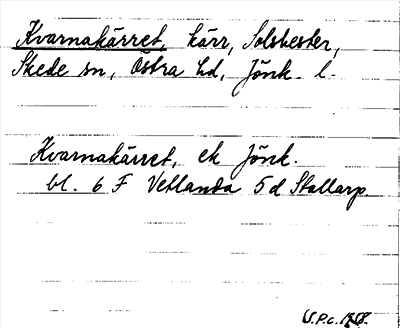 Kvarnakärret, kärr, Solshester,
Skede sn, Östra hd, Jönk. l.
Kvarnakärret, ek Jönk.
bl. 6 F Vetlanda 5 d Stallarp.